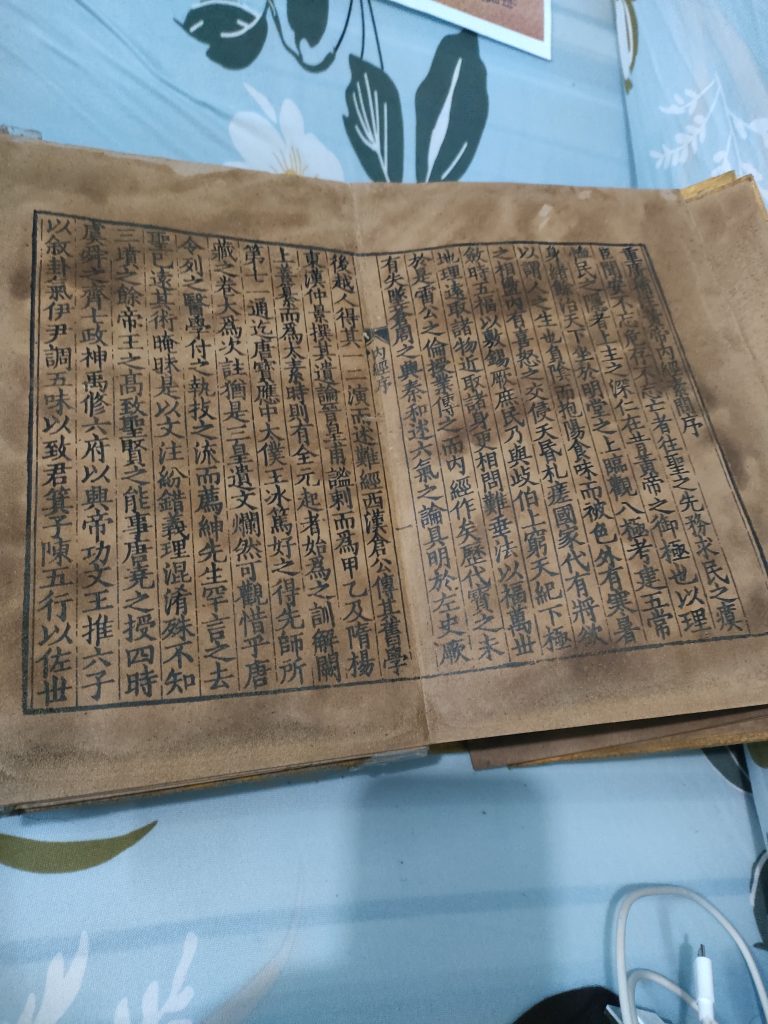 重廣補註黃帝內經素問序
臣聞安不忘危存不忘亡者往聖之先務求民之瘼
恤民之隱者上主之深仁在昔黃帝之御極也以理
身緒餘治天下坐於明堂之上臨觀八極考建五常
以謂人之生也負陰而抱陽食味而被色外有寒暑
之相盪內有喜怒之交侵夭昏札瘥國家代有將欲
斂時五福以敷錫厥庶民乃與歧伯上窮天紀下極
地理遠取諸物近取諸身更相問難垂法以福萬世
於是雷公之倫授業傳之而內經作矣歷代寶之未
有失墜蒼周之興秦和述六氣之論具明於左史厥
內經序
一
後越人得其一二演而述難經西漢倉公傳其舊學
東漢仲景撰其遺論晉皇甫謐刺而為甲乙及隋楊
上善纂而為太素時則有全元起者始為之訓解闕
第七一通迄唐寶應中太僕王冰篤好之得先師所
藏之卷大為次註猶是三皇遺文爛然可觀惜乎唐
令列之醫學付之執技之流而薦紳先生罕言之去
聖已遠其術晻昧是以文注紛錯義理混淆殊不知
三墳之餘帝王之高致聖賢之能事唐堯之授四時
虞舜之齊七政神禹修六府以興帝功文王推六子
以敘卦氣伊尹調五味以致君箕子陳五行以佐世